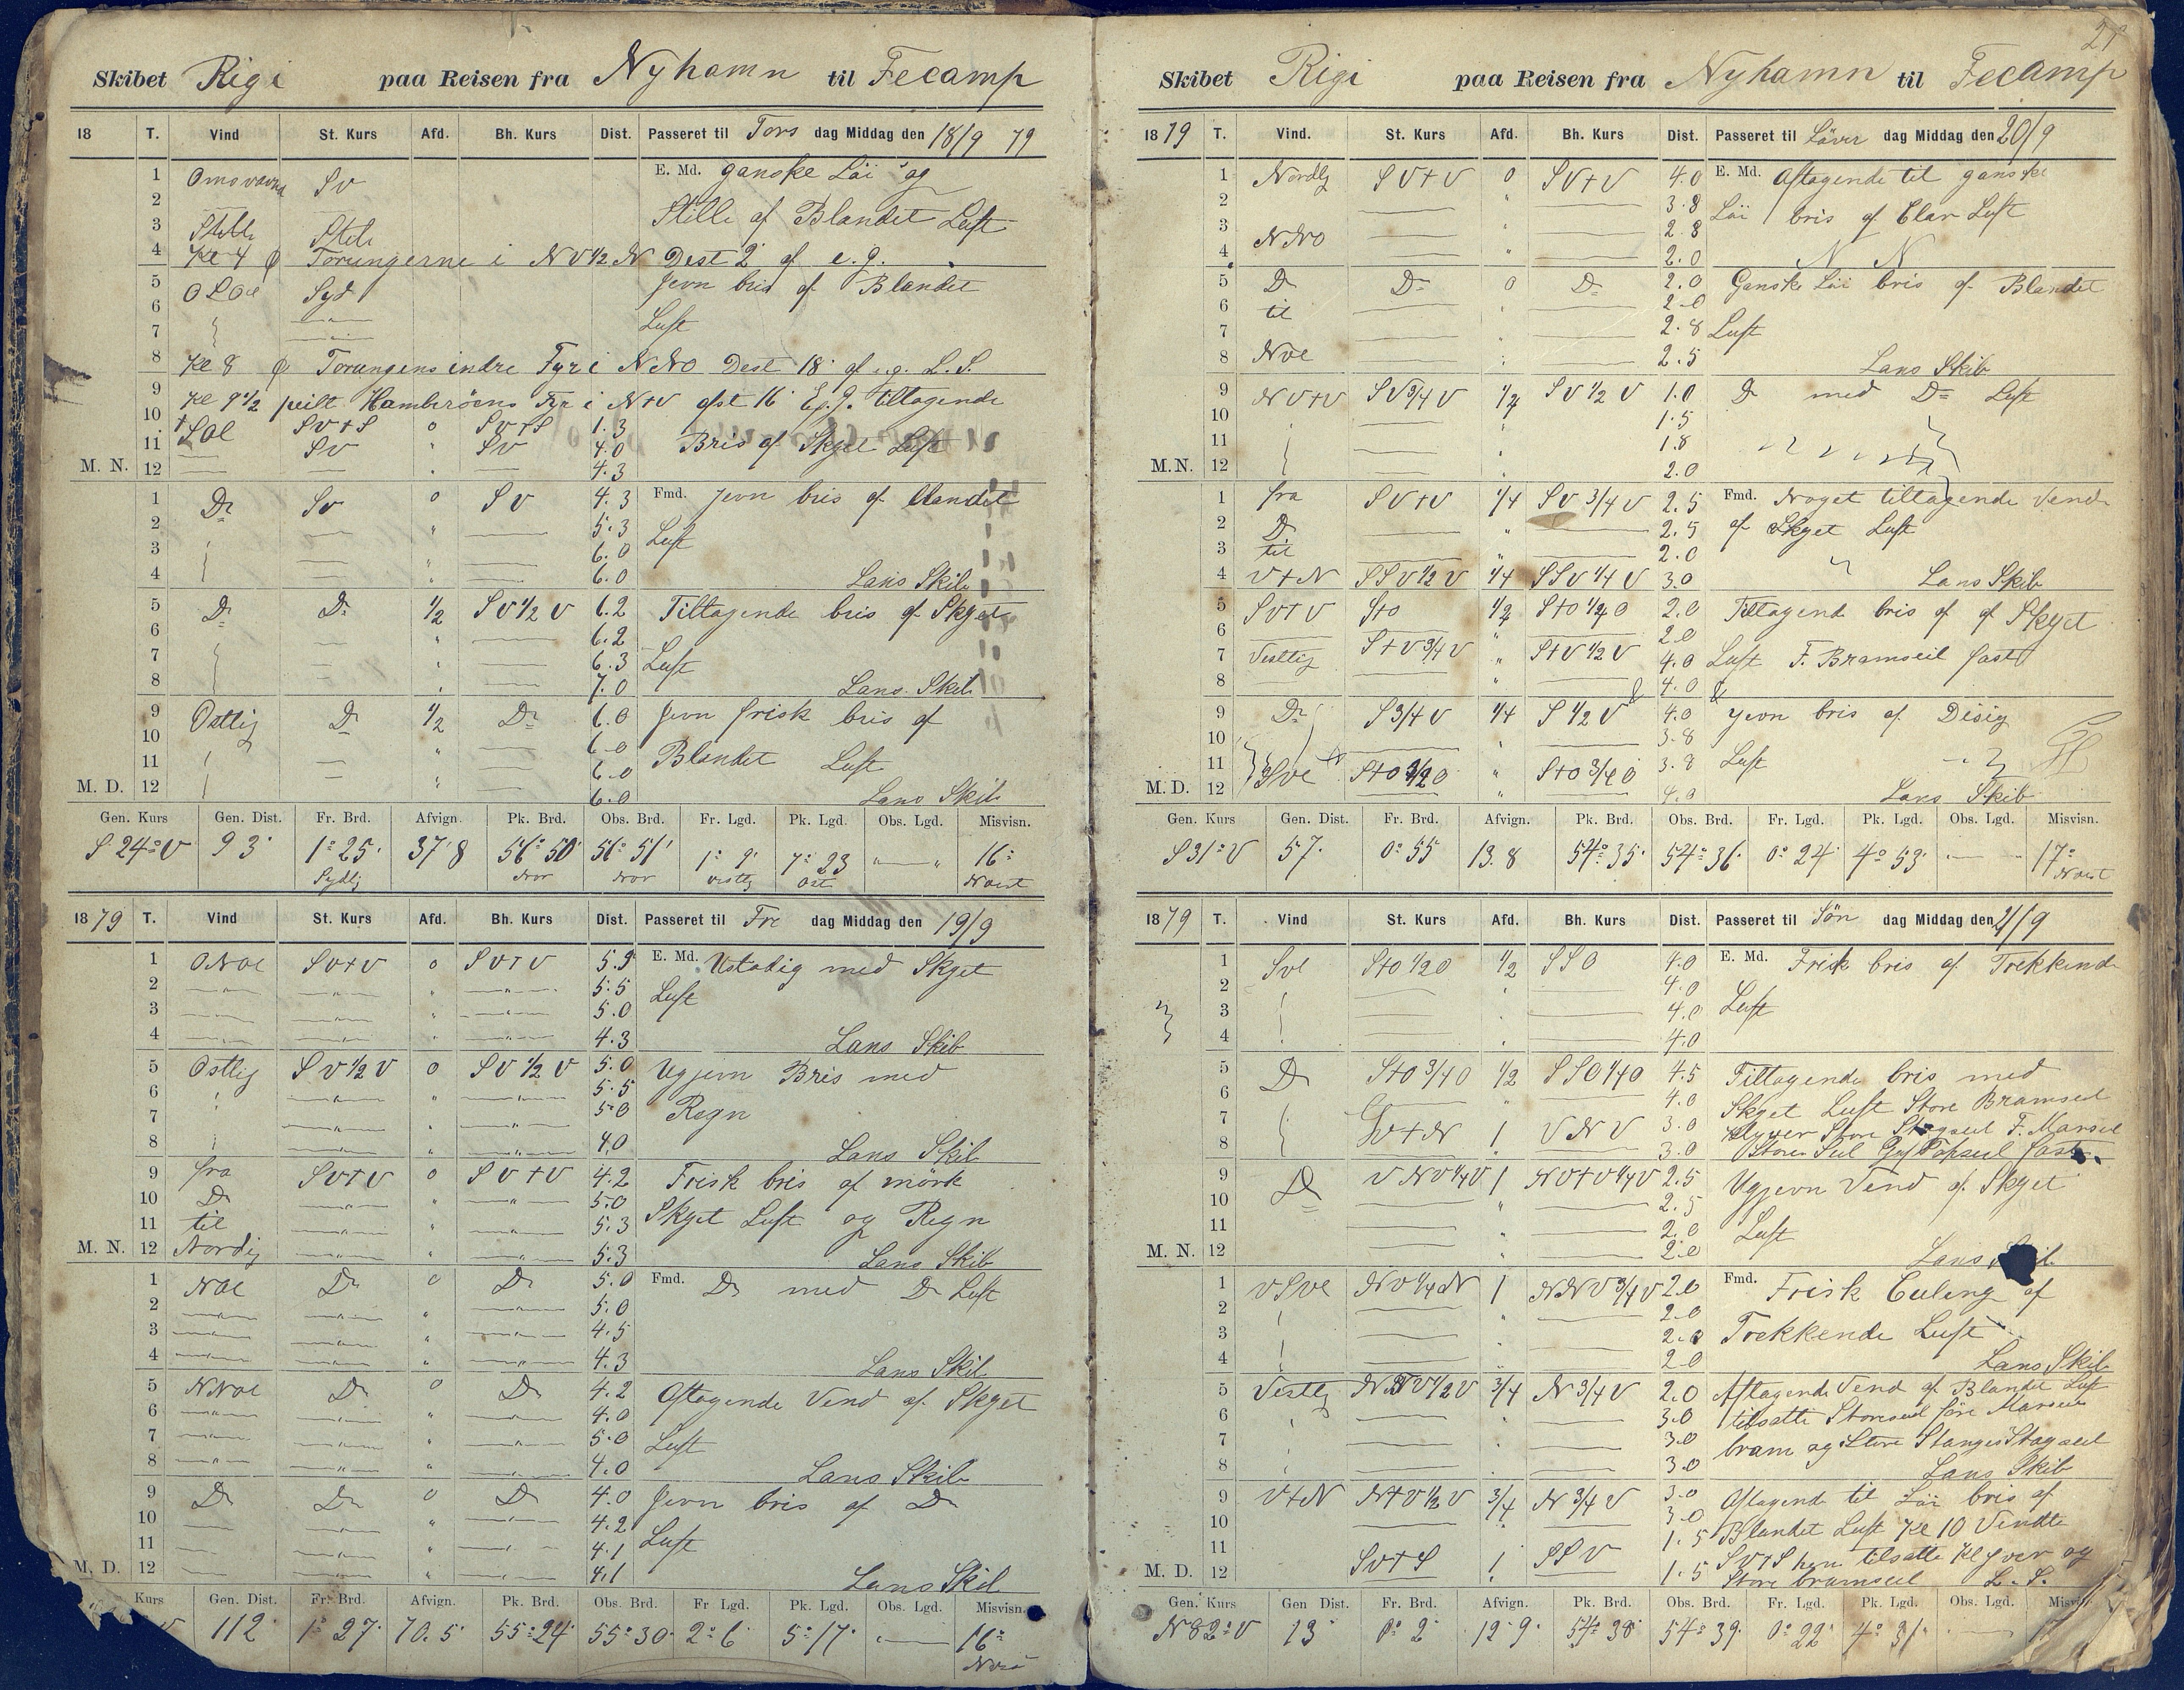 Skibet Rigi paa Reisen fra Nyhamn til Fecamp
18 T. Vind St. Kurs Afd. Bh. Kurs Dist. Passeret til Tors dag Middag den 18/9 79
1 Omsvavna SV E. Md. ganske Löi og
2 Stille of Blandet Luft
3 Stille Stelle
4 Kl 4 φ Torungerne i NV½N Dest 2' of e. g.
5 OSOe Syd Jevn bris of Blandet
6 Luft
7
8 Kl 8 φ Torungens indre Fyr i NNO Dest 18' of e.g. L. S.
9 Kl 9½ peilt Hamberöens Fyr i N+V afst 16' Eg. g. tiltagende
10 SOe SV+S 0 SV+S 1.3
11 SV " SV 4.0 Bris of Skyet Luft
M. N. 12 " 4.3
1 Do SV 0 SV 4.3 Fmd. Jevn bris of blandet
2 " 5.3 Luft
3 " 6.0
4 " 6.0 Lans Skib
5 Do Do ½ SV½V 6.2 Tiltagende bris of Skyet
6 " 6.2
7 " 6.3 Luft
8 " 7.0 Lans Skib
9 Ostlig Do ½ Do 6.0 Jevn frisk bris of
10 " 6.0
11 " 6.0 Blandet Luft
M. D. 12 " 6.0 Lans Skib
Gen. Kurs Gen. Dist. Fr. Brd. Afvign. Pk. Brd. Obs. Brd. Fr. Lgd. Pk. Lgd. Obs. Lgd. Misvisn.
S 24° V 93' 1° 25' 37'8 56° 50' 56° 51' 1° 9' 7° 23 "—" 16°
Sydlig Nor Nor vestlig Ost Nvest
1879 T. Vind St. Kurs Afd. Bh. Kurs Dist. Passeret til Fre dag Middag den 19/9
1 ONOe SV+V 0 SV+V 5.5 E. Md. Ustadig med Skyet
2 " 5.5 Luft
3 " 5.0
4 " 4.3 Lans Skib
5 Ostlig SV½V 0 SV½V 5.0 Ugjevn Bris med
6 " 5.5
7 " 5.0 Regn
8 " 4.0 Lans Skib
9 fra SV+V 0 SV+V 4.2 Frisk bris of mörk
10 Do " 5.0
11 til " 5.3 Skyet Luft og Regn
M. N. 12 Nordlig " 5.3 Lans Skib
1 NOe Do 0 Do 5.0 Fmd. Do med Do Luft
2 " 5.0
3 " 4.5
4 " 4.3 Lans Skib
5 NNOe Do 0 Do 4.2 Aftagende Vend of Skyet
6 " 4.0
7 " 5.0 Luft
8 " 4.0 Lans Skib
9 Do Do 0 Do 4.0 Jevn bris of Do
10 " 4.2
11 " 4.1 Luft
M. D. 12 " 4.1 Lans Skib
Kurs Gen. Dist. Fr. Brd. Afvign. Pk. Brd. Obs. Brd. Fr Lgd. Pk. Lgd. Obs. Lgd. Misvisn.
V 112 1° 27' 70.5 55° 24' 55° 30' 2° 6' 5° 17' "— 16°
21
Skibet Rigi paa Reisen fra Nyhamn til Fecamp
1879 T. Vind. St. Kurs Afd. Bh. Kurs Dist. Passeret til Löver dag Middag den 20/9
1 Nordlg SV+V 0 SV+V 4.0 E. Md. Aftagende til ganske
2 " 3.8
3 NNO " 2.8 Löi bris of Clar Luft
4 " 2.0 N N
5 Do Do 0 Do 2.0 Ganske Löi bris of Blandet
6 til " 2.0
7 " 2.8 Luft
8 NVe " 2.5 Lans Skib
9 NV+V SV¾V ¼ SV½V 1.0 Do med Do Luft
10 " 1.5
11 " 1.8
M.N. 12 " 2.0
1 fra SV+V ¼ SV¾V 2.5 Fmd. Noget tiltagende Vend
2 Do " 2.5 of Skyet Luft
3 til " 2.0
4 V+N SSV½V ¼ SSV¼V 3.0 Lans Skib
5 SV+V S+O ½ S+O½O 2.0 Tiltagende bris of of Skyet
6 " 2.0
7 Vestlig S+V¾V " S+V½V 4.0 Luft F. Bramseil fast
8 " 4.0
9 Do S¾V ¼ S½V 4.0 Jevn bris of Disig
10 " 3.8
11 SVe S+O½O " S+O¾O 3.8 Luft
M. D. 12 " 4.0 Lans Skib
Gen. Kurs Gen. Dist. Fr. Brd. Afvign. Pk. Brd. Obs. Brd. Fr. Lgd. Pk. Lgd. Obs. Lgd. Misvisn.
S 31° V 57' 0° 55 13.8 54° 35' 54° 36' 0° 24' 4° 53' — 17°
Nvest
1879 T. Vind St. Kurs Afd. Bh. Kurs Dist. Passeret til Sön dag Middag den 21/9
1 SVe S+O½O ½ SSO 4.0 E. Md. Frisk bris of Trekkende
2 4.0
3 4.0 Luft
4 4.0
5 Do S+O¾O ½ SSO¼O 4.5 Tiltagende bris med
6 " 4.0 Skyet Luft Store Bramseil
7 V+N 1 VNV 3.0 Klyver Store Stagseil F. Marseil
8 3.0 Storeseil Gaf Topseil fast
9 Do VNV¼V 1 NV+V¼V 2.5 Ugjevn Vend of Skyet
10 " 2.5
11 " 2.0 Luft
M. N. 12 " 2.0 Lans
1 VSVe NV¼N 1 NNV¾V 2.0 Fmd. Frisk Culing of
2 " 2.0
3 2.0 Trekkende Luft
4 2.0 Lans Skib
5 Vestlg ¾ N¾V 2.0 Aftagende Vend of Blandet Luft
6 3.0 tilsatte Storeseil Marseil
7 3.0 bram og Store Stanges Stagseil
8 3.0 Lans Skib
9 V+N N+V½V ¾ N¾V 3.0 Aftagende til Löi bris of
10 3.0 Blandet Luft Kl 10 Vendte
11 SV+S 1 SSV 1.5 SV+S hen tilsatte Klyver og
M. D. 12 1.5 Store bramseil L. S.
Gen. Kurs Gen Dist. Fr. Brd. Afvign. Pk. Brd. Obs. Brd. Fr. Lgd. Pk. Lgd. Obs. Lgd.
N 82° V 13 0° 2' 12'9' 54° 38' 54° 39' 0° 22' 4° 31' —